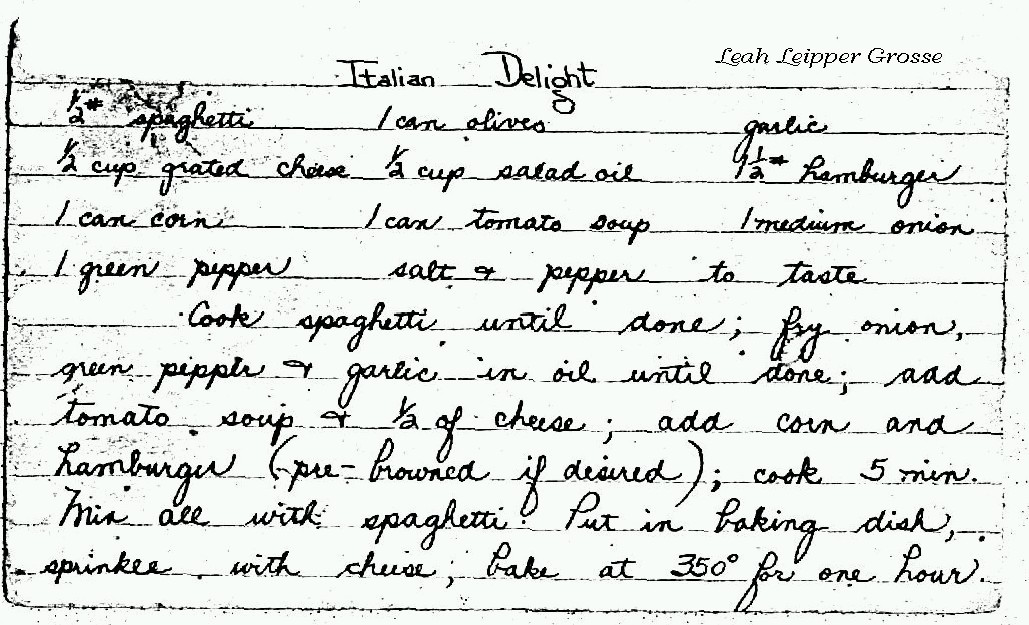 Leah Leipper Grosse
Italian Delight
½# spaghetti 1 can olives garlic
½ cup grated cheese ½ cup salad oil 1½# hamburger
1 can corn 1 can tomato soup 1 medium onion
1 green pepper salt & pepper to taste
Cook spaghetti until done; fry onion,
green pepper & garlic in oil until done; add
tomato soup & ½ of cheese; add corn and
hamburger (pre-browned if desired); cook 5 min.
Mix all with spaghetti. Put in baking dish,
sprinkle with cheese; bake at 350° for one hour.